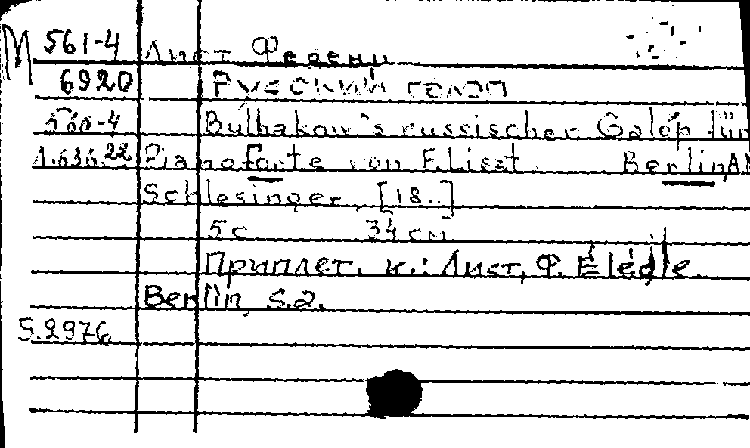 М 561-4 Лист Ференц
6920 Русский галоп
560-4 Bulhakow's russischer Galop für
1.636.22 Pianoforte von F. Liszt. Berlin, A.
Schlesinger, [18..]
5 с 34 см
Приплет. к.: Лист, Ф. Élégie.
Berlin, s.a.
S.2976